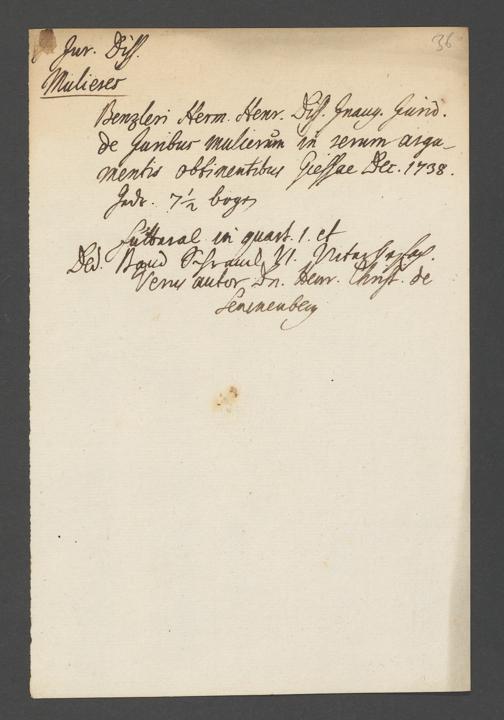 36
Jur. Diss.
Mulieres
Benzleri Herm. Henr. Diss. Inaug. Jurid.
de Juribus mulierum in rerum argu-
mentis obtinentibus Giessae Dec. 1738.
7 1/2 bogen
in quart. 1. et
Ded. Band VI.
Verus autor Dn. Henr. Christ. de
Senckenberg